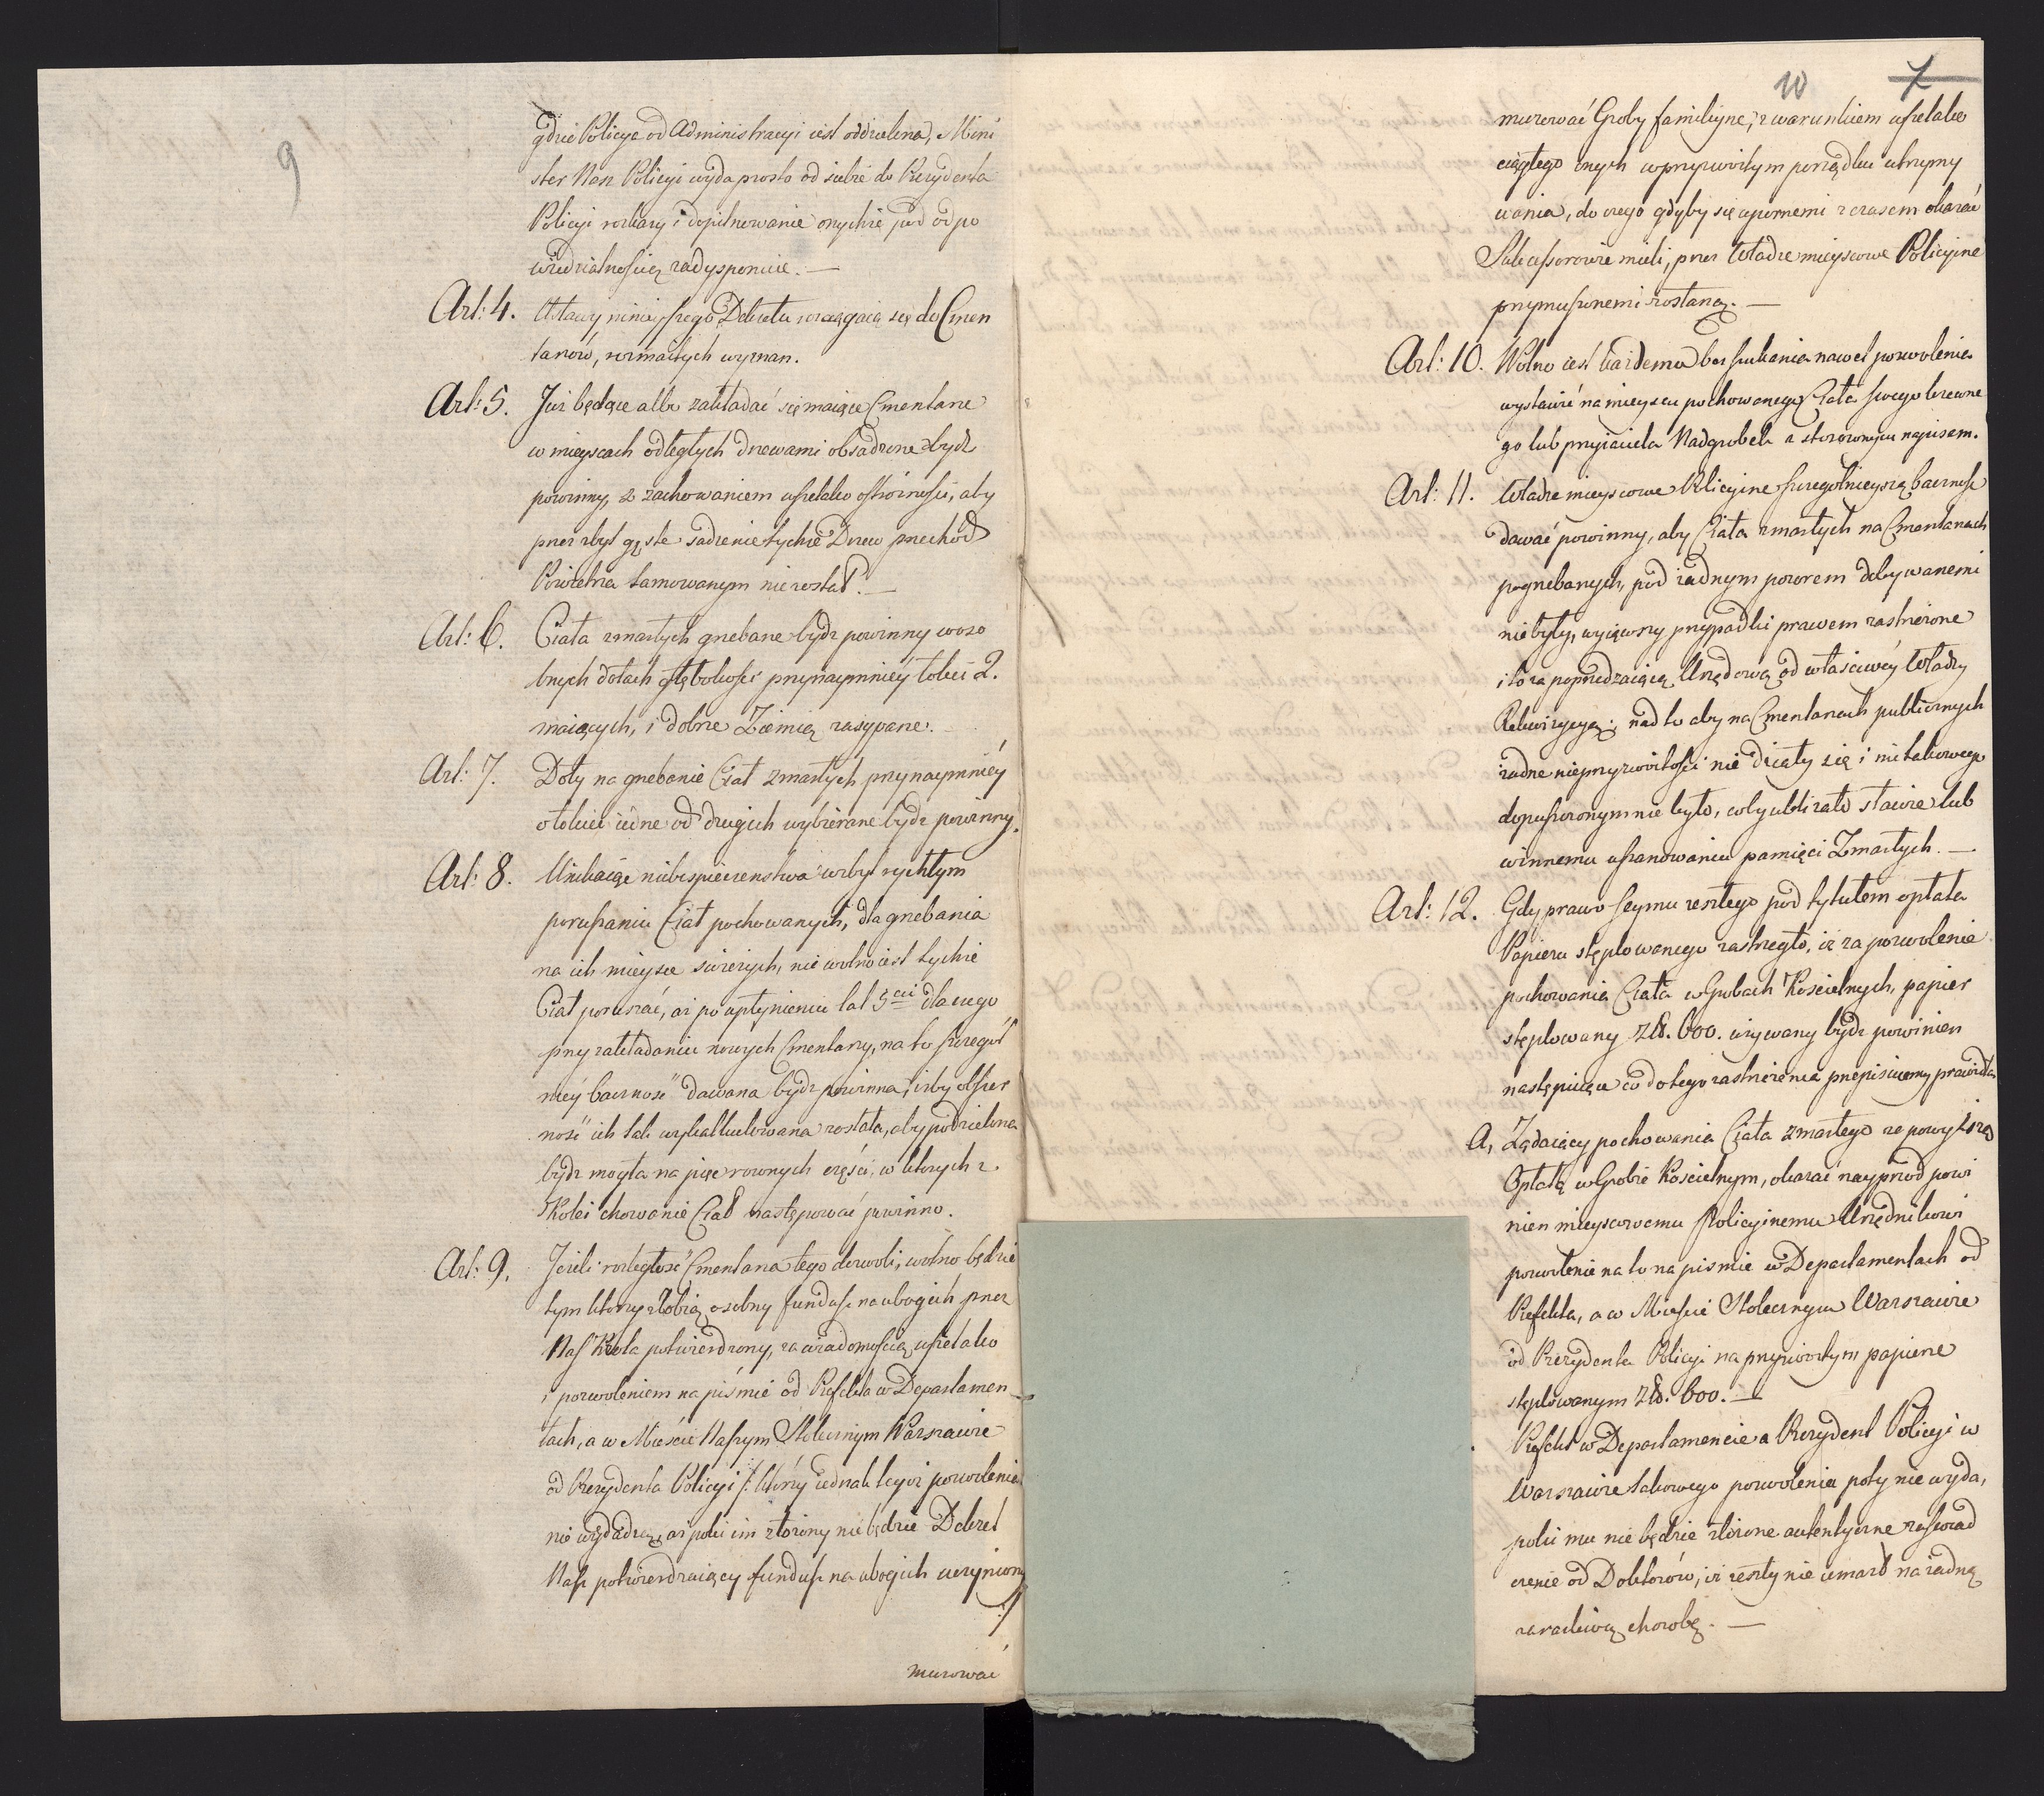 9
gdzie Policya od Administracyi iest oddzielona, Mini
ster Nasz Policyi wyda prosto od siebie do Prezydenta
Policyi rozkazy i dopilnowanie onychże pod odpo
wiedzialnością zadysponuie. —
Art: 4. Ustawy ninieyszego Dekretu rozciągaią się do Cmen
tarzów, rozmaitych wyznan.
Art: 5. Już będące albo zakładać się maiące Cmentarze
w mieyscach odległych drzewami obsadzone bydz
powinny, z zachowaniem wszelako ostrożności, aby
przez zbyt gęste sadzenie tychże Drzew przechód
Powietrza tamowanym nie został. —
Art: 6. Ciała zmarłych grzebane bydz powinny w oso
bnych dołach głębokości przynaymniéy łokci 2.
maiących, i dobrze Ziemią zasypane.
Art: 7. Doły na grzebanie Ciał zmarłych przynaymniéy
o łokieć iedne od drugich wybierane bydz powinny.
Art: 8. Unikaiąc niebespieczenstwa w zbyt rychłym
poruszaniu Ciał pochowanych, dla grzebania
na ich mieysce swieżych, nie wolno iest tychże
Ciał poruszać, aż po upłynieniu lat 5ciu dla czego
przy zakładaniu nowych Cmentarzy, na to szczegól
niéy bacznosć dawana bydz powinna, iżby obszer
ność ich tak wykalkulowana została, aby podzielona
bydz mogła na pięc rownych części, w których z
Kolei chowanie Ciał następować powinno.
Art: 9. Jeżeli rozległość Cmentarza tego dozwoli, wolno będzie
tym którzy zrobią osobny fundusz na ubogich przez
Nas Króla potwierdzony, za wiadomością wszelako
i pozwoleniem na piśmie od Prefekta w Departamen
tach, a w Mieście Naszym Stołecznym Warszawie
od Prezydenta Policyi /: którzy iednak tegoż pozwolenia
nie wydadzą, aż póki im złożony nie będzie Dekret
Nasz potwierdzaiący fundusz na ubogich uczyniony
:/
murować
10 7
murować Groby familiyne, z warunkiem wszelako
ciągłego onych w przyzwoitym porządku utrzymy
wania, do czego gdyby się upornemi z czasem okazać
Sukcessorowie mieli, przez Władze mieyscowe Policyjne
przymuszonemi zostaną. —
Art: 10. Wolno iest każdemu bez szukania nawet pozwolenia
wystawić na mieyscu pochowanego Ciała swego krewne
go lub przyiaciela Nadgrobek z stosownym napisem.
Art: 11. Władze mieyscowe Policyine szczegolnieyszą baczność
dawać powinny, aby Ciała zmarłych na Cmentarzach
pogrzebanych, pod żadnym pozorem dobywanemi
nie były, wyiąwszy przypadki prawem zastrzeżone
i to za poprzedzaiącą Urzędową od właściwéy Władzy
Rekwizycyą; nad to aby na Cmentarzach publicznych
żadne nieprzyzwoitości nie działy się i nic takowego
dopuszczonym nie było, coby ubliżało sławie lub
winnemu uszanowaniu pamięci Zmarłych. —
Art: 12. Gdy prawo Seymu zeszłego pod tytułem opłata
Papieru stęplowanego zastrzegło, iż za pozwolenie
pochowania Ciała w Grobach Kościelnych, papier
stęplowany Zł. 600. używany bydz powinien
następuiące co do tego zastrzeżenia przepisuiemy prawidła
A, Żądaiący pochowania Ciała zmarłego za powyższą
Opłatą w Grobie Kościelnym, okazać nayprzód powi
nien mieyscowemu Policyinemu Urzędnikowi
pozwolenie na to na pismie w Departamentach od
Prefekta, a w Mieście Stołecznym Warszawie
od Prezydenta Policyi na przyzwoitym papierze
stęplowanym Zł. 600. —
Prefekt w Departamencie a Prezydent Policyi w
Warszawie takowego pozwolenia poty nie wyda,
poki mu nie będzie złożone autentyczne zaswiad
czenie od Doktorów, iż zeszły nie umarł na żadną
zaraźliwą chorobę. —